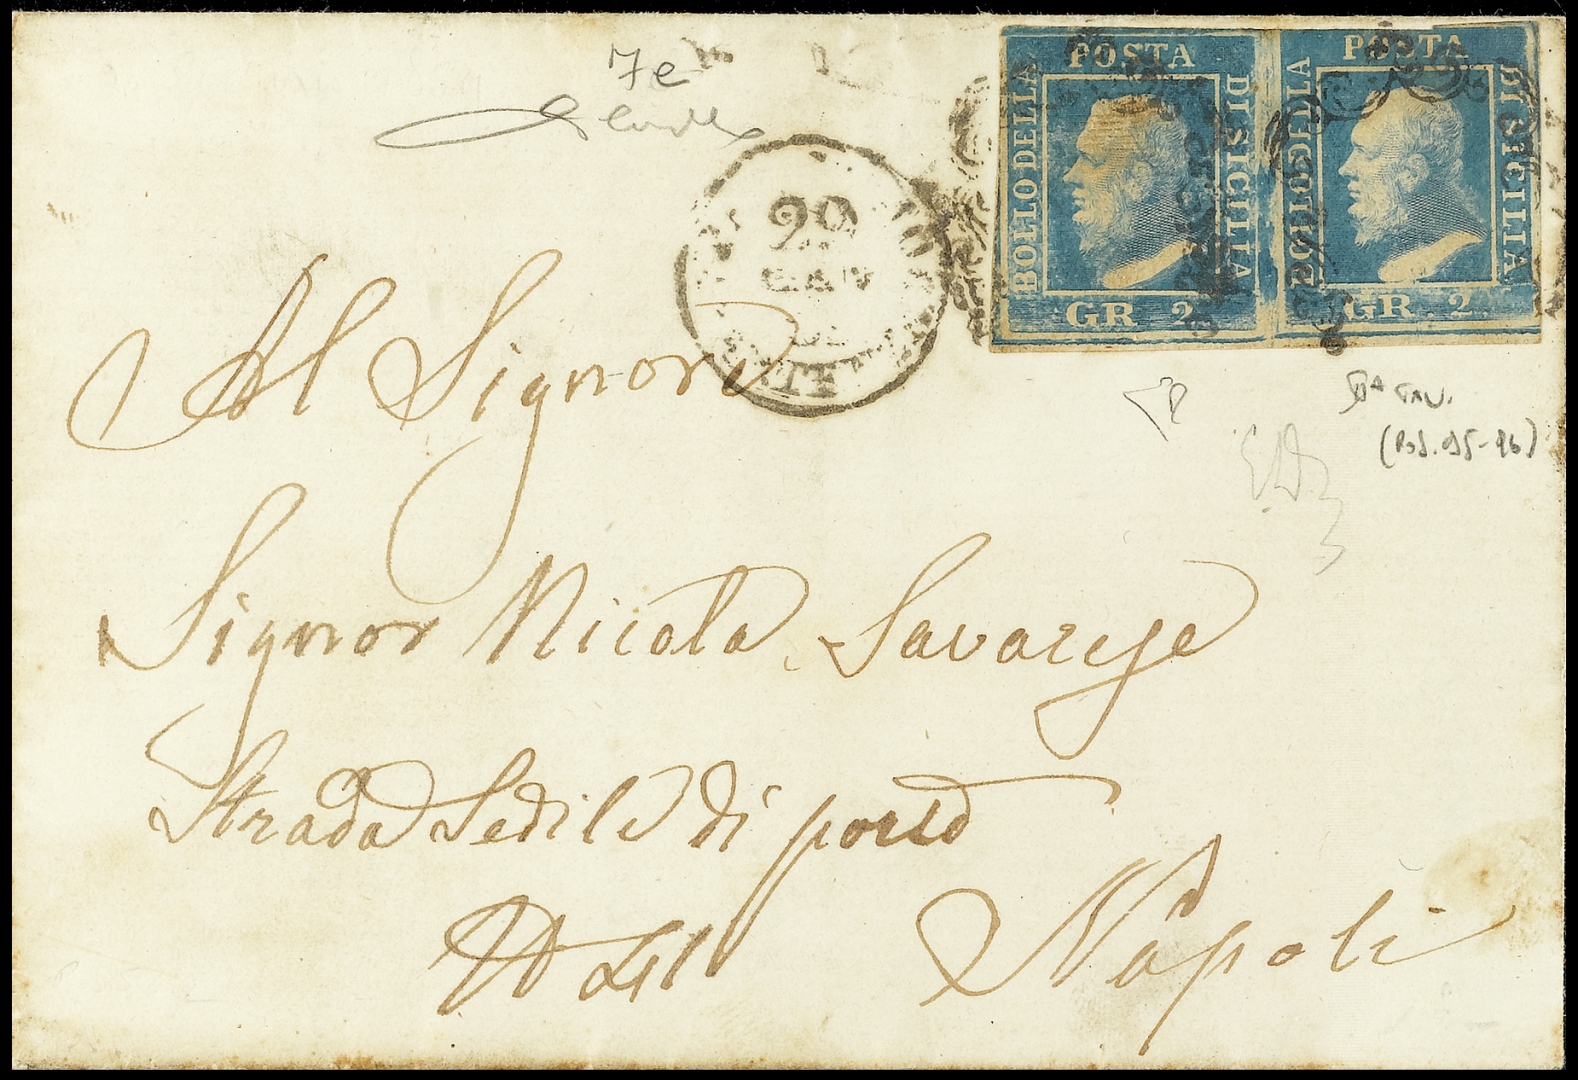 7e
POSTA
BOLLO DELLA
DI SICILIA
GR. 2.
POSTA
BOLLO DELLA
DI SICILIA
GR. 2.
Al Signore
Signor Nicola Savarese
Strada Sedile di porto
Napoli